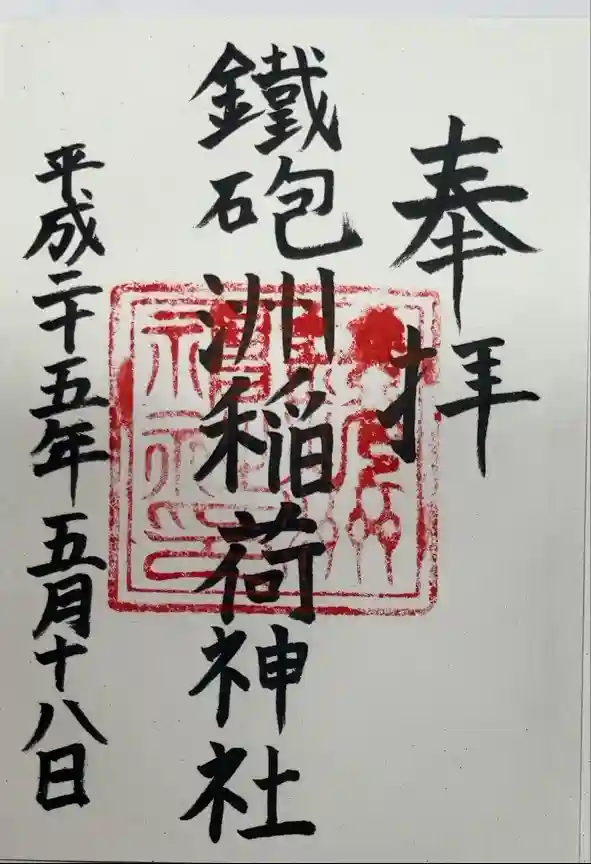 奉拝
鐵砲洲稲荷神社
平成二十五年五月十八日